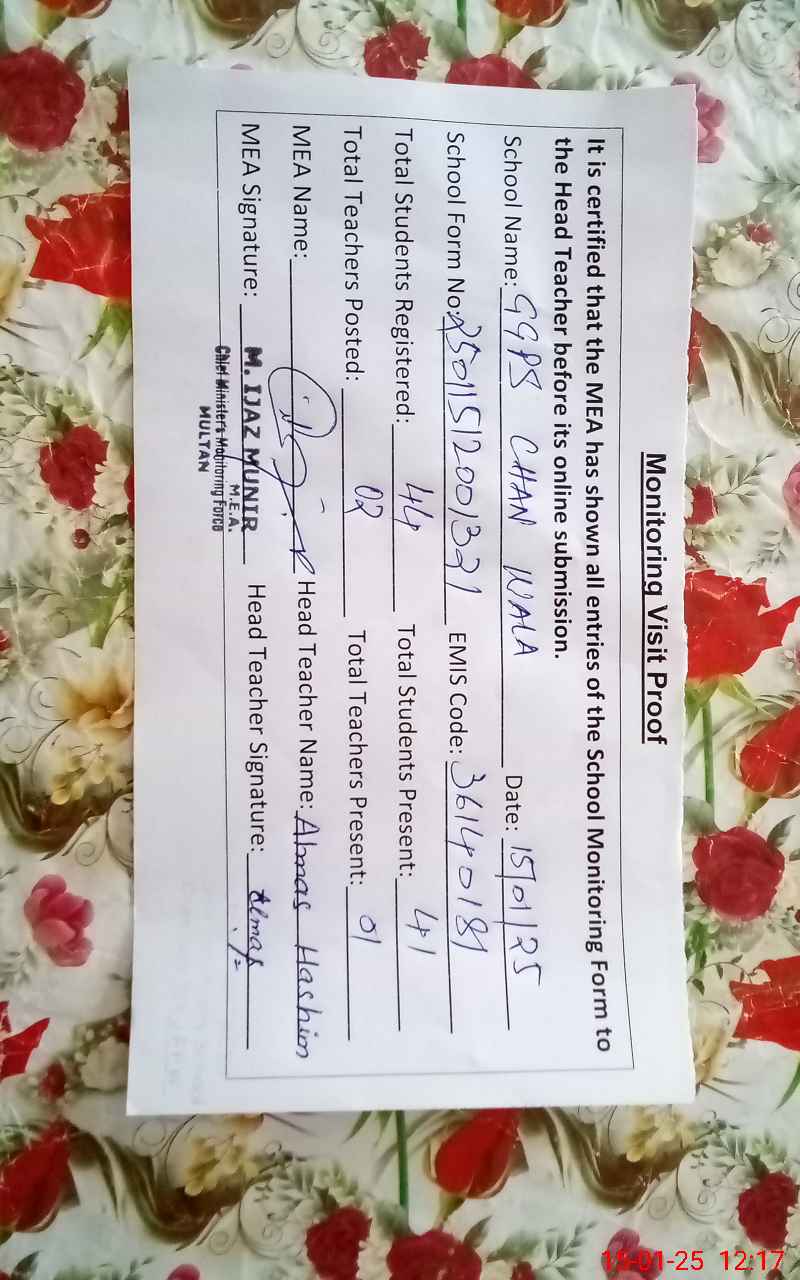 Monitoring Visit Proof
It is certified that the MEA has shown all entries of the School Monitoring Form to
the Head Teacher before its online submission.
School Name: GGPS CHAN WALA Date: 15/01/25
School Form No: 25011512001321 EMIS Code: 36140181
Total Students Registered: 44 Total Students Present: 41
Total Teachers Posted: 02 Total Teachers Present: 01
MEA Name: Head Teacher Name: Almas Hashim
MEA Signature: Head Teacher Signature: Almas
M. IJAZ MUNIR
M.E.A.
Chief Minister's Monitoring Force
MULTAN
15-01-25 12:17